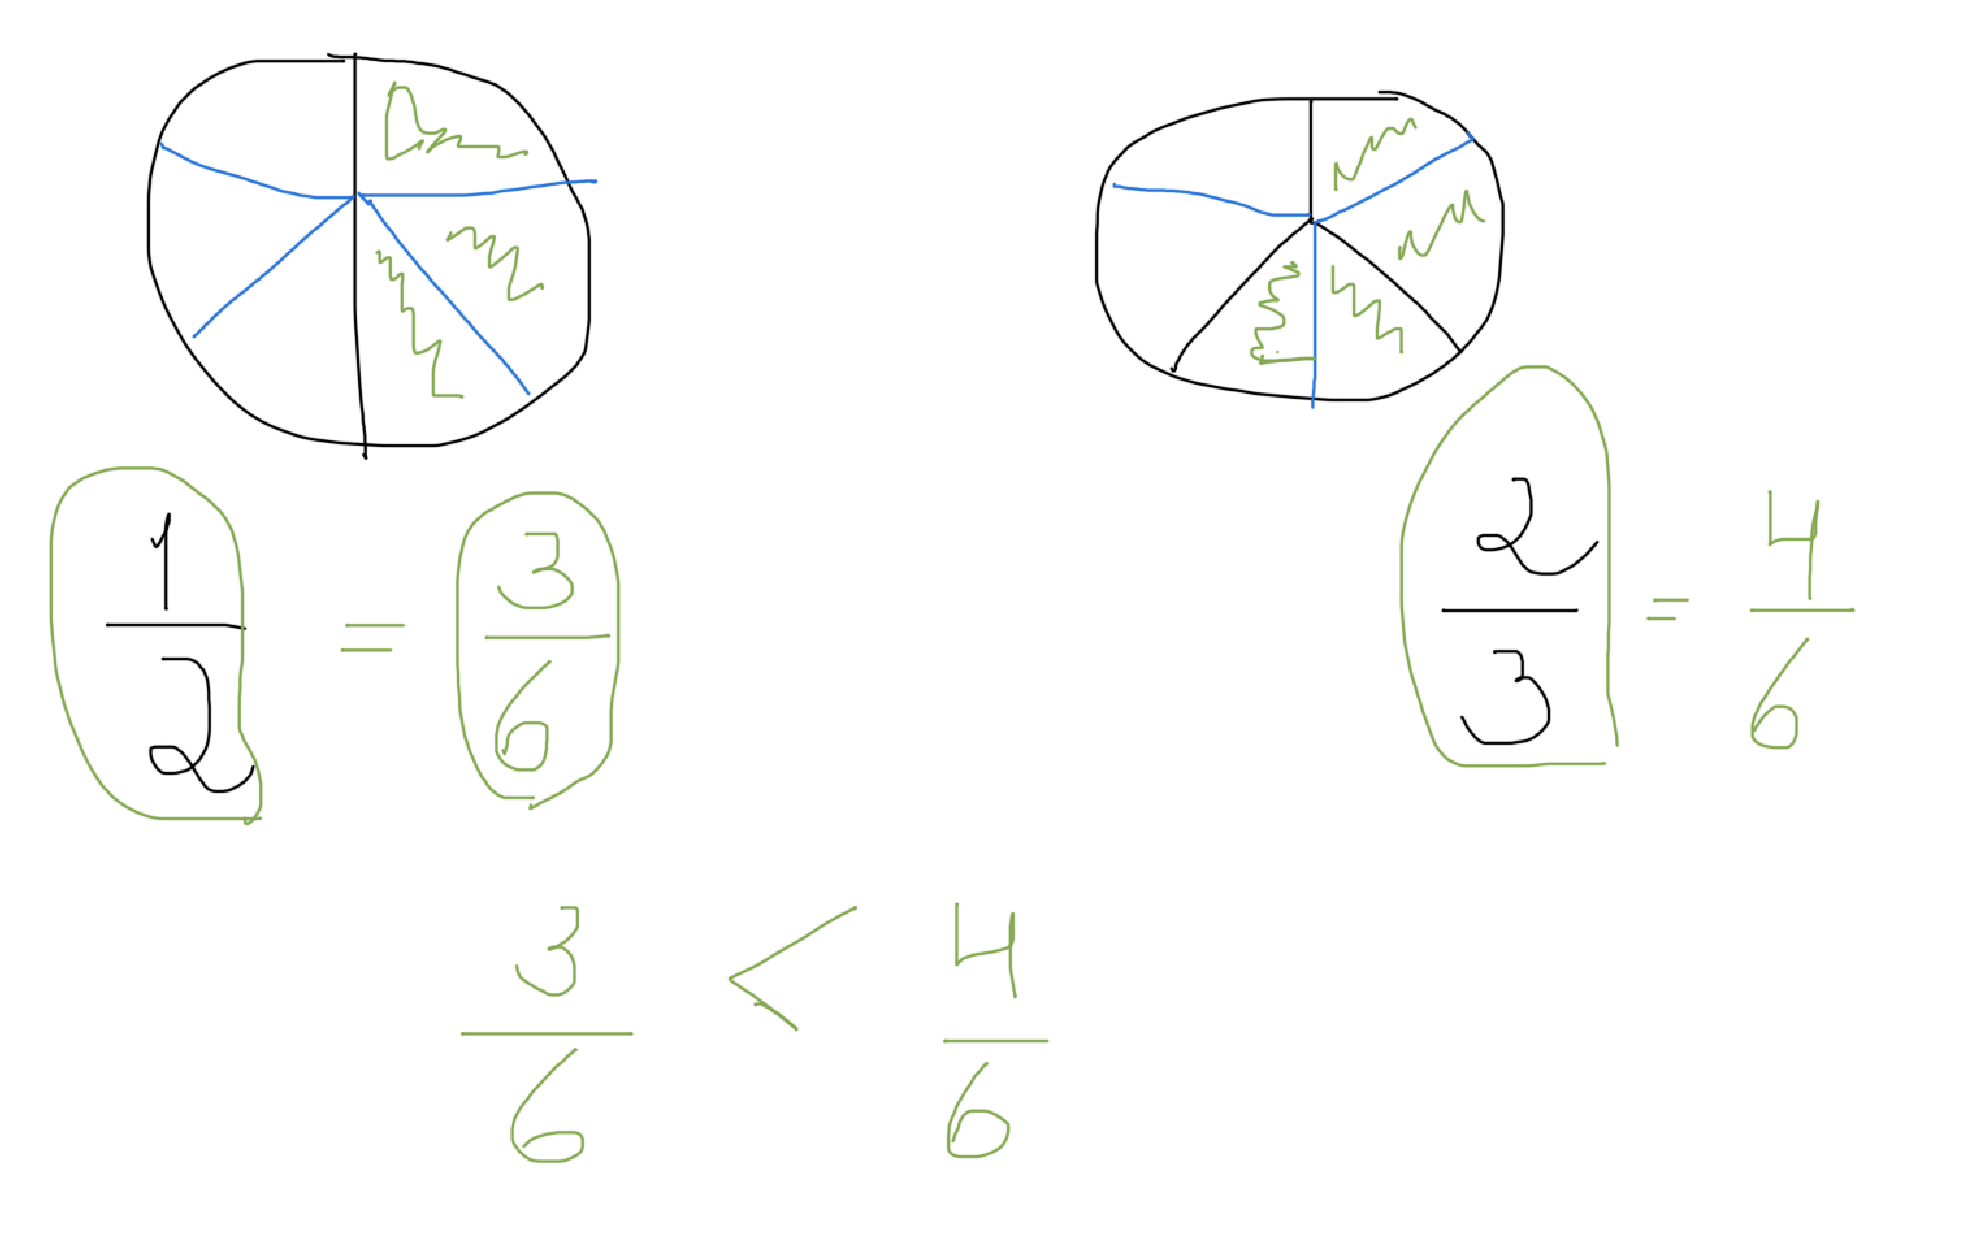 1/2 = 3/6
2/3 = 4/6
3/6 < 4/6